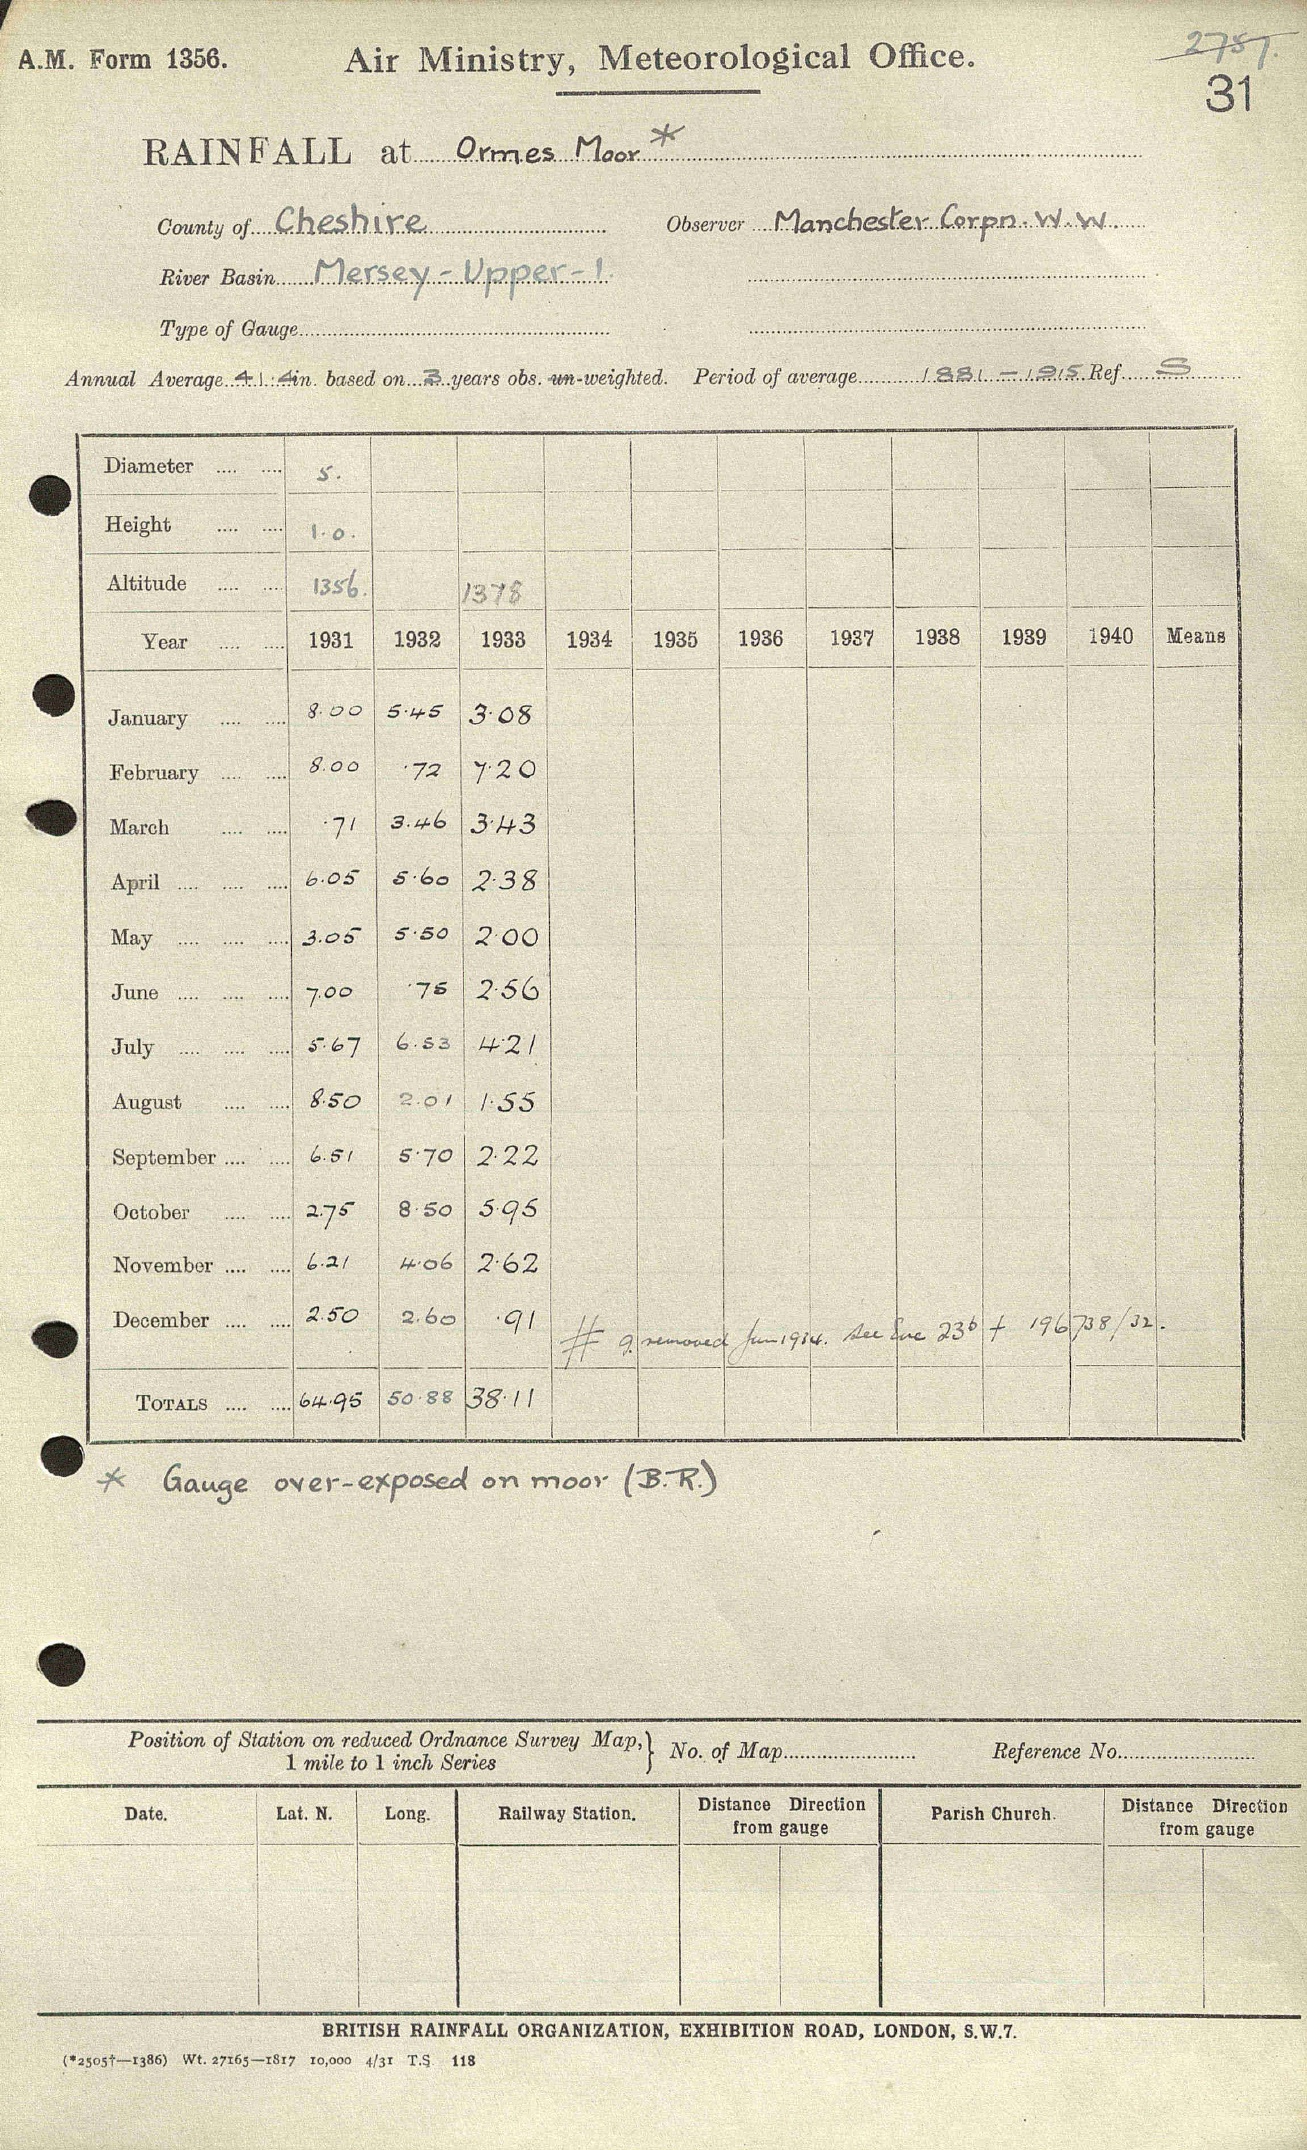 2787.
A.M. Form 1356. Air Ministry, Meteorological Office.
31
RAINFALL at Ormes Moor *
County of Cheshire Observer Manchester Corpn. W.W.
River Basin Mersey - Upper - 1.
Type of Gauge
Annual Average 41.4 in. based on 3 years obs. un-weighted. Period of average 1881 - 1915 Ref. S
Diameter .... .... 5.
Height .... .... 1.0.
Altitude .... .... 1356. 1378
Year .... .... 1931 1932 1933 1934 1935 1936 1937 1938 1939 1940 Means
January .... .... 8.00 5.45 3.08
February .... .... 8.00 .72 7.20
March .... .... .71 3.46 3.43
April .... .... .... 6.05 5.60 2.38
May .... .... .... 3.05 5.50 2.00
June .... .... .... 7.00 .75 2.56
July .... .... .... 5.67 6.53 4.21
August .... .... 8.50 2.01 1.55
September .... .... 6.51 5.70 2.22
October .... .... 2.75 8.50 5.95
November .... .... 6.21 4.06 2.62
December .... .... 2.50 2.60 .91
# g. removed Jan 1934. See Enc 23b + 196738/32.
TOTALS .... .... 64.95 50.88 38.11
* Gauge over-exposed on moor (B.R.)
Position of Station on reduced Ordnance Survey Map, } No. of Map Reference No.
1 mile to 1 inch Series
Date. Lat. N. Long. Railway Station. Distance Direction from gauge Parish Church. Distance Direction from gauge
BRITISH RAINFALL ORGANIZATION, EXHIBITION ROAD, LONDON, S.W.7.
(*2505†—1386) Wt. 27165—1817 10,000 4/31 T.S. 118